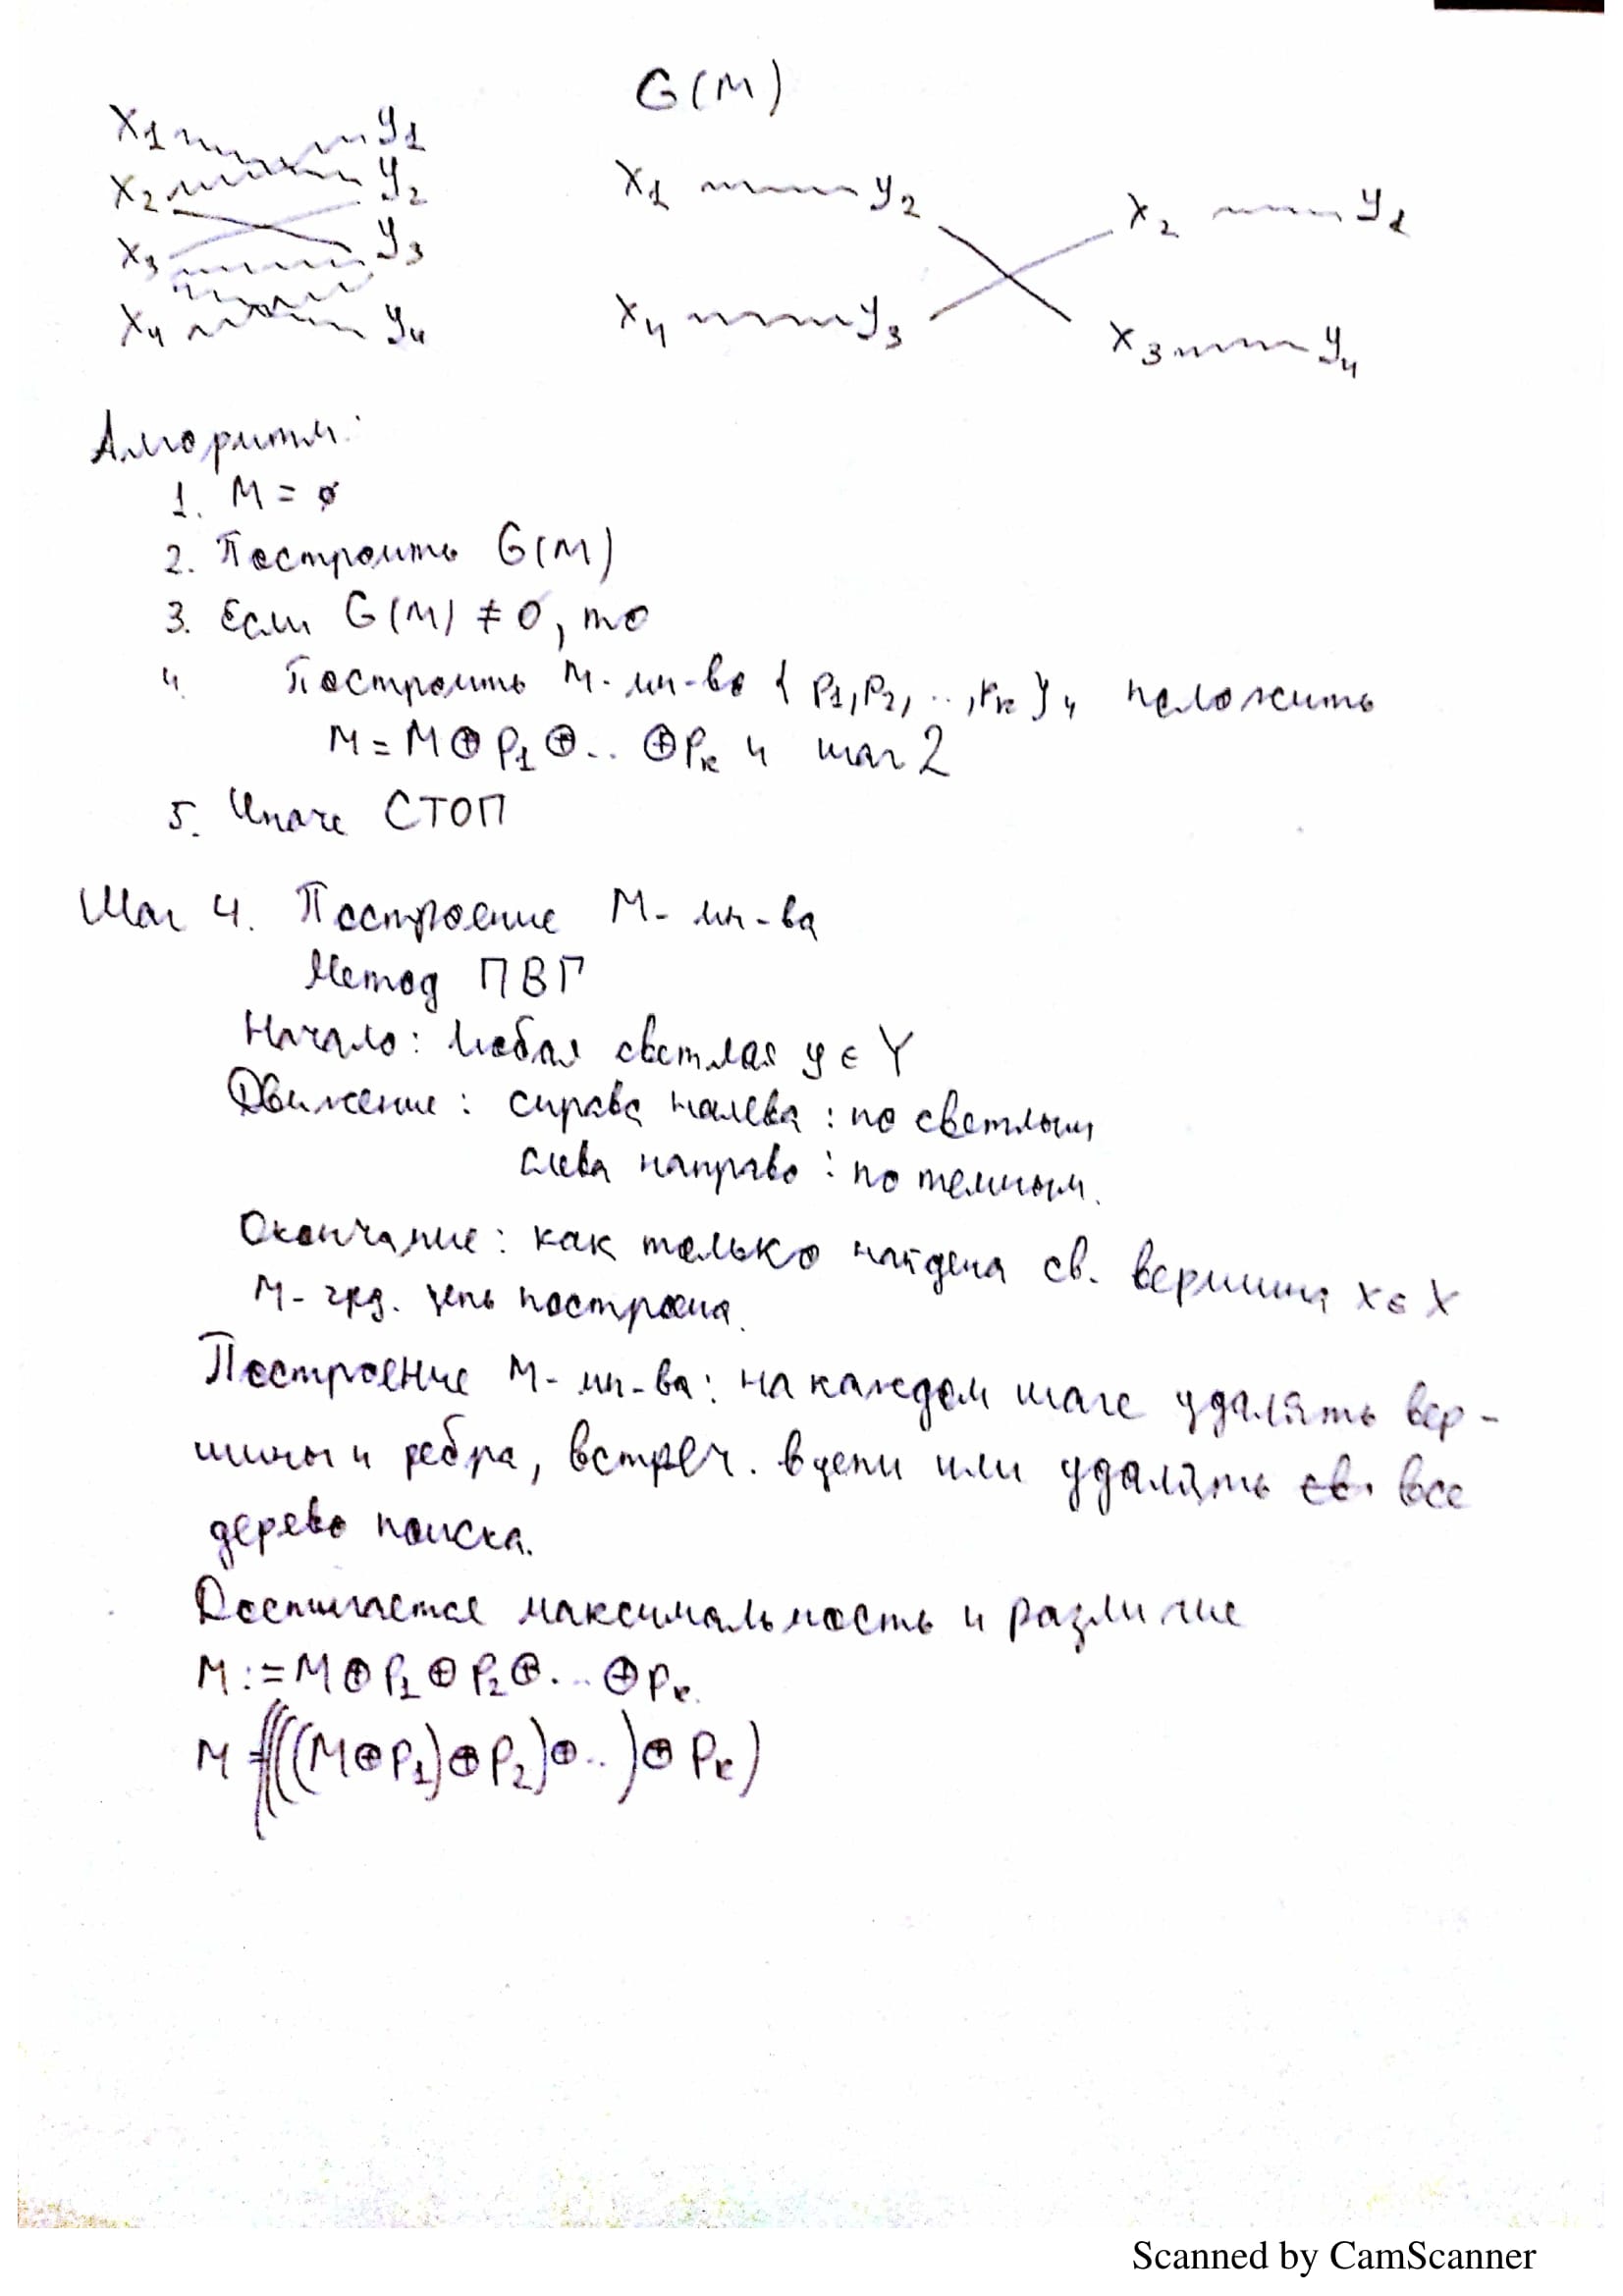 G(M)
x1 y1
x2 y2
x3 y3
x4 y4
x1 y2 x2 y1
x4 y3 x3 y4
Алгоритм:
1. M = ∅
2. Построить G(M)
3. Если G(M) ≠ 0, то
4. Построить M-мн-во {P1, P2, .., Pk} и положить
M = M ⊕ P1 ⊕ .. ⊕ Pk и шаг 2
5. Иначе СТОП
Шаг 4. Построение M-мн-ва
Метод ПВГ
Начало: любая светлая y ∈ Y
Движение: справа налево: по светлым
слева направо: по темным.
Окончание: как только найдена св. вершина x ∈ X
M-чред. цепь построена.
Построение M-мн-ва: на каждом шаге удалять вер-
шины и ребра, встреч. в цепи или удалять св. все
дерево поиска.
Достигается максимальность и различие
M := M ⊕ P1 ⊕ P2 ⊕ ... ⊕ Pk.
M = ((((M ⊕ P1) ⊕ P2) ⊕ ..) ⊕ Pk)
Scanned by CamScanner